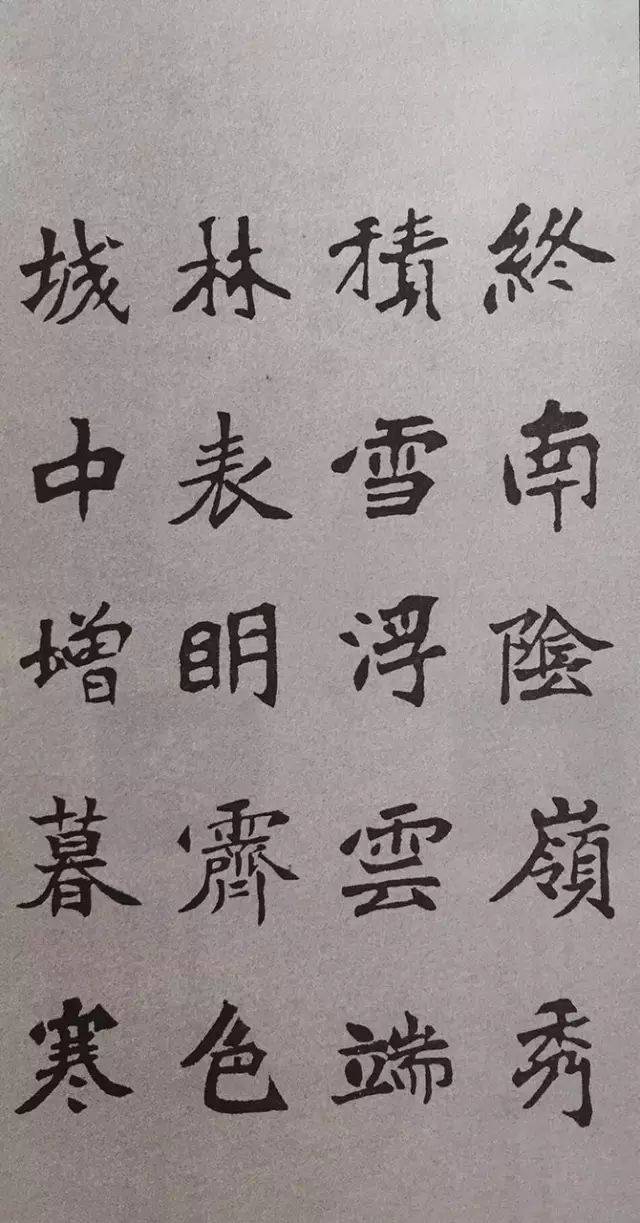 終南陰嶺秀
積雪浮雲端
林表明霽色
城中增暮寒